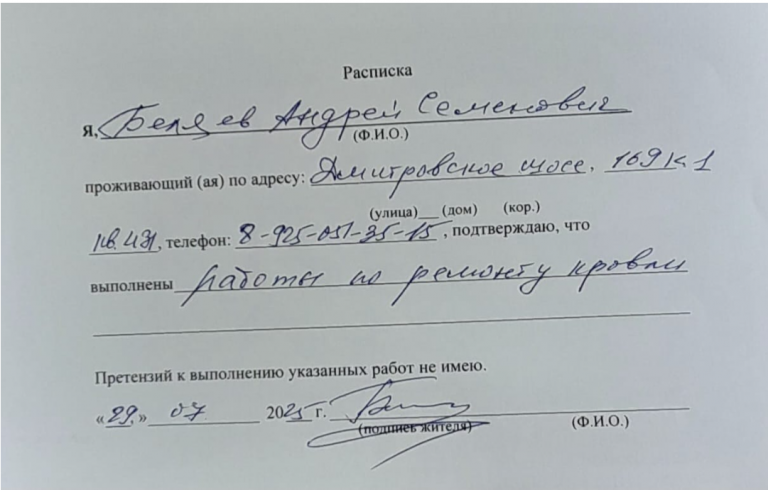 Расписка
Я, Беляев Андрей Семенович
(Ф.И.О.)
проживающий (ая) по адресу: Дмитровское шосе, 169 к 1
(улица)__ (дом) (кор.)
кв. 431, телефон: 8-925-051-35-15, подтверждаю, что
выполнены работы по ремонту кровли
Претензий к выполнению указанных работ не имею.
«29.» 07 2025 г.
(подпись жителя) (Ф.И.О.)